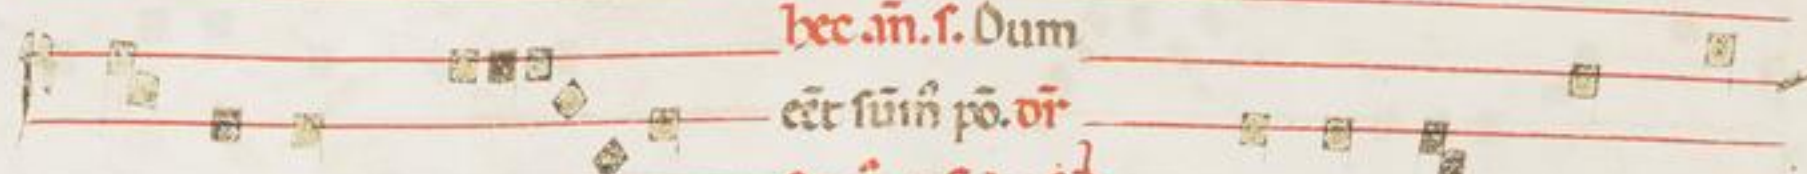 hec.añ.s. Dum
eēt sūm̄ pō.or̄